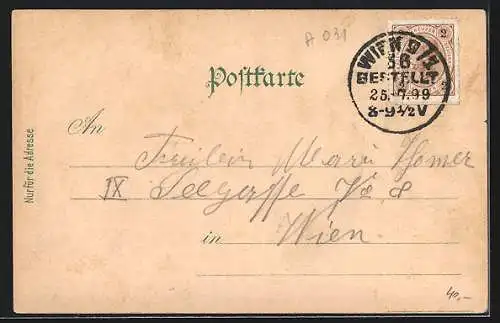 A 031
WIEN 9/1
36
BESTELLT
25.7.99
8-9½V
2
Postkarte
Nur für die Adresse
An
Fräulein Marie
IX Seegasse No. 8
in Wien.
40,-